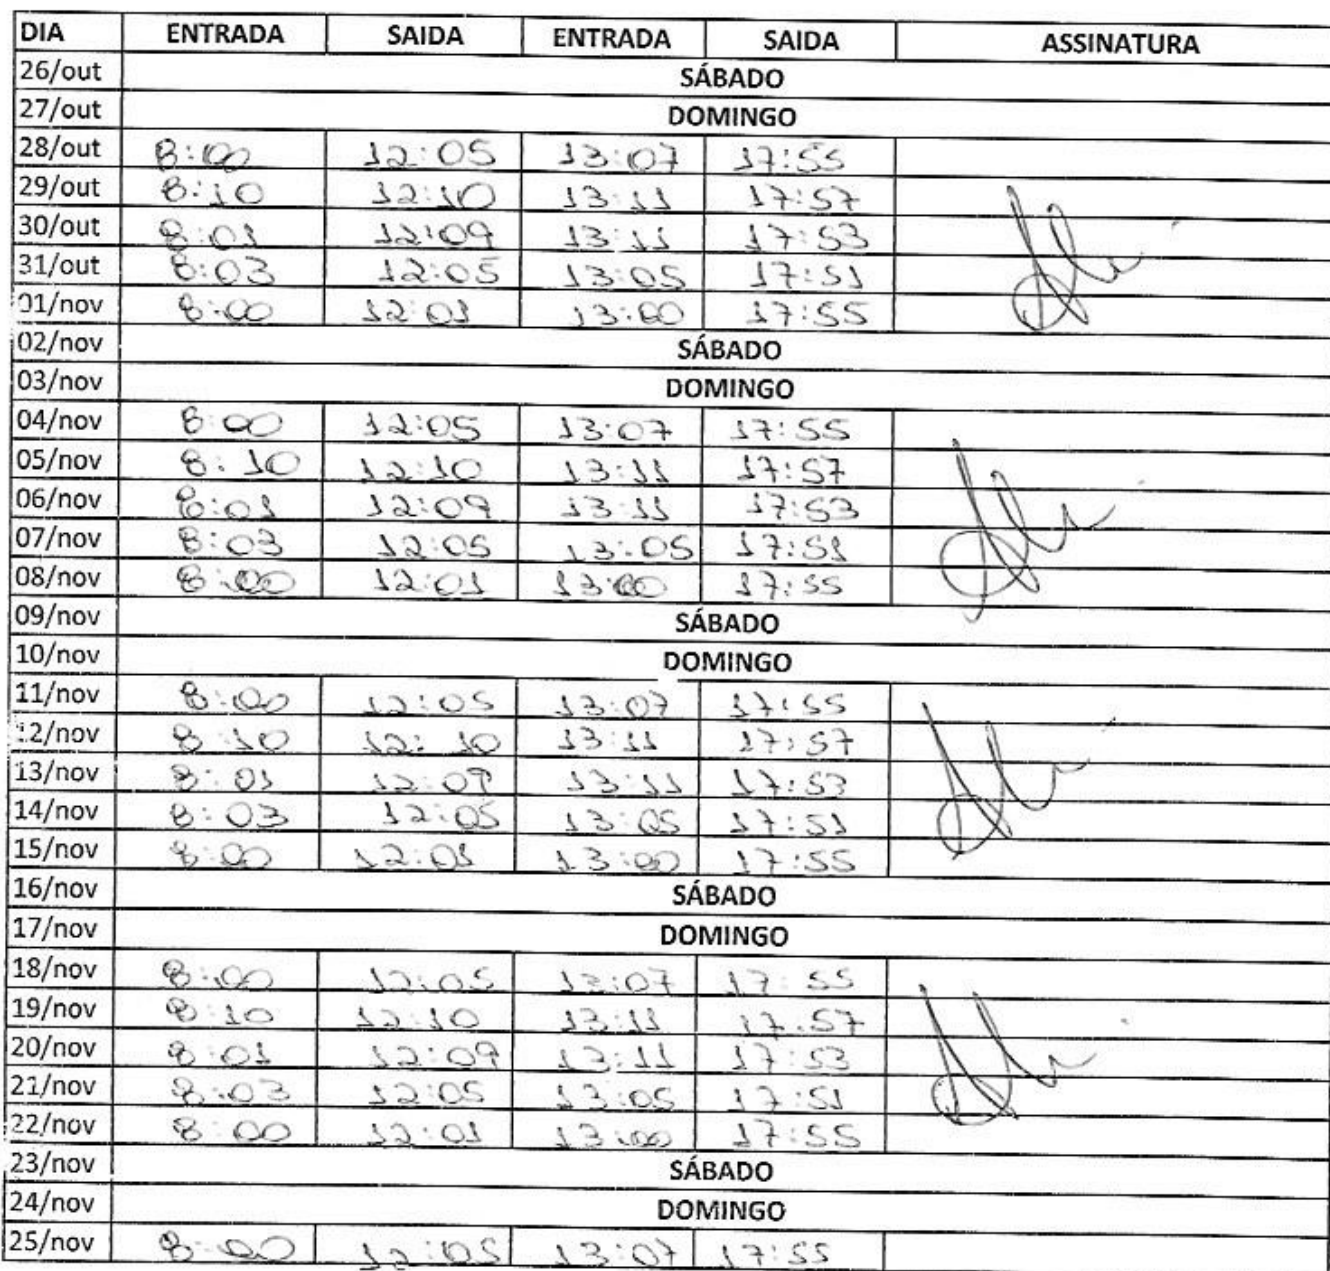 DIA ENTRADA SAIDA ENTRADA SAIDA ASSINATURA
26/out SÁBADO
27/out DOMINGO
28/out 8:00 12:05 13:07 17:55
29/out 8:10 12:10 13:11 17:57
30/out 8:01 12:09 13:11 17:53
31/out 8:03 12:05 13:05 17:51
01/nov 8:00 12:01 13:00 17:55
02/nov SÁBADO
03/nov DOMINGO
04/nov 8:00 12:05 13:07 17:55
05/nov 8:10 12:10 13:11 17:57
06/nov 8:01 12:09 13:11 17:53
07/nov 8:03 12:05 13:05 17:51
08/nov 8:00 12:01 13:00 17:55
09/nov SÁBADO
10/nov DOMINGO
11/nov 8:00 12:05 13:07 17:55
12/nov 8:10 12:10 13:11 17:57
13/nov 8:01 12:09 13:11 17:53
14/nov 8:03 12:05 13:05 17:51
15/nov 8:00 12:01 13:00 17:55
16/nov SÁBADO
17/nov DOMINGO
18/nov 8:00 12:05 13:07 17:55
19/nov 8:10 12:10 13:11 17:57
20/nov 8:01 12:09 13:11 17:53
21/nov 8:03 12:05 13:05 17:51
22/nov 8:00 12:01 13:00 17:55
23/nov SÁBADO
24/nov DOMINGO
25/nov 8:00 12:05 13:07 17:55